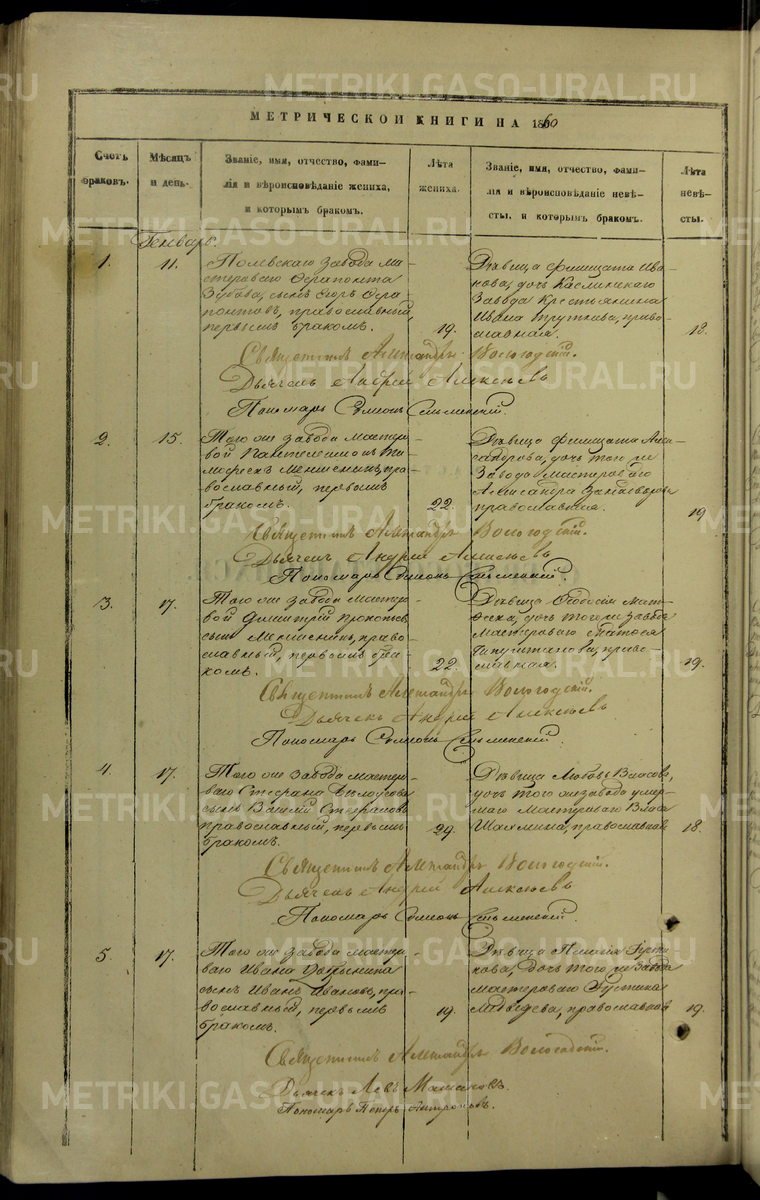 МЕТРИЧЕСКОЙ КНИГИ НА 1860
Счетъ браковъ.
Мѣсяцъ и день.
Званіе, имя, отчество, фами-
лія и вѣроисповѣданіе жениха,
и которымъ бракомъ.
Лѣта жениха.
Званіе, имя, отчество, фами-
лія и вѣроисповѣданіе невѣ-
сты, и которымъ бракомъ.
Лѣта невѣ-
сты.
Генварь.
1.
11.
Полевскаго завода ма-
стероваго Ферапонта
Зубова, сынъ Егоръ Фера
понтовъ, православный,
первымъ бракомъ.
19.
Дѣвица Фелицата Ива
нова, дочь Каслинскаго
Завода Крестьянина
Ивана Трутнева, право-
славная.
18.
Священникъ Александръ Вологодскій.
Дьячекъ Андрей Алексѣевъ
Пономарь Симеонъ
2.
15.
Того же завода мастеро
вой Пантелеимонъ Ти
мофеевъ пра
вославный, первымъ
бракомъ.
22.
Дѣвица Фелицата Алек
сандрова, дочь того же
Завода Мастероваго
Александра
православная.
19
Священникъ Александръ Вологодскій.
Дьячекъ Андрей Алексѣевъ
Пономарь Симеонъ
3.
17.
Того же завода мастеро
вой Димитрій Прокопьевъ
сынъ право
славный, первымъ бра
комъ.
22.
Дѣвица Феодосія Мат
ѳеева, дочь того же завода
мастероваго Матѳея
право-
славная.
19.
Священникъ Александръ Вологодскій.
Дьячекъ Андрей Алексѣевъ
Пономарь Симеонъ
4.
17.
Того же завода мастеро
ваго Стефана
сынъ Василій Стефановъ
православный, первымъ
бракомъ.
29.
Дѣвица Любовь Власова,
дочь того же завода умер
шаго Мастероваго Власа
Шахмина, православная
18.
Священникъ Александръ Вологодскій.
Дьячекъ Андрей Алексѣевъ
Пономарь Симеонъ
5.
17.
Того же завода мастеро
ваго Ивана
сынъ Иванъ Ивановъ, пра-
вославный, первымъ
бракомъ.
19.
Дѣвица Пелагія Густи
нова, дочь того же завода
мастероваго Густина
Медвѣдева, православная
19.
Священникъ Александръ Вологодскій.
Дьячекъ Левъ
Пономарь Петръ Антроповъ.
METRIKI.GASO-URAL.RU